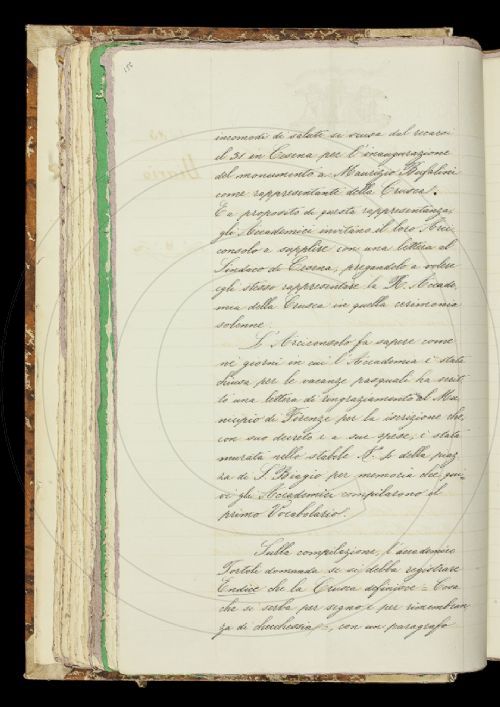 incomodi di salute si scusa dal recarsi
il 31 in Cesena per l'inaugurazione
del monumento a Maurizio Bufalini
come rappresentante della Crusca.
E a proposito di questa rappresentanza,
gli Accademici invitano il loro Arci-
consolo a supplire con una lettera al
Sindaco di Cesena, pregandolo a volere
egli stesso rappresentare la R. Accade-
mia della Crusca in quella cerimonia
solenne.
L'Arciconsolo fa sapere come
ne' giorni in cui l'Accademia è stata
chiusa per le vacanze pasquali ha scrit-
to una lettera di ringraziamento al Mu-
nicipio di Firenze per la iscrizione che,
con suo decreto e a sue spese, è stata
murata nello stabile N. della piaz-
za di S. Biagio per memoria che qui-
vi gli Accademici compilarono il
primo Vocabolario.
Sulla compilazione, l'accademico
Tortoli domanda se si debba registrare
Endice che la Crusca definisce = Cosa
che si serba per segno, e per rimembran
za di checchessia =, con un paragrafo